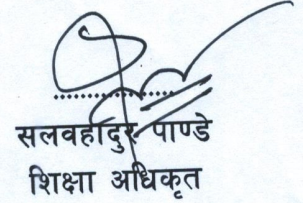 सलवहादुर पाण्डे
शिक्षा अधिकृत